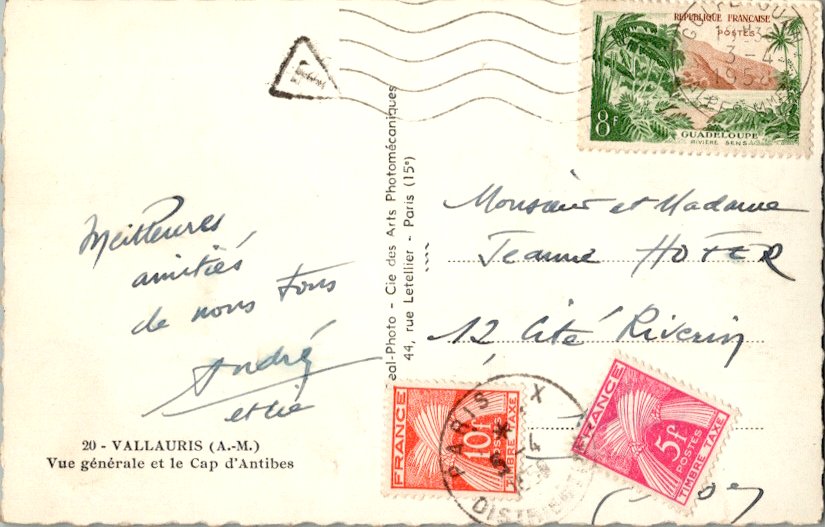 Meilleures
amitiés
de nous tous
André
et Cie
20 - VALLAURIS (A.-M.)
Vue générale et le Cap d'Antibes
eal-Photo - Cie des Arts Photomécaniques
44, rue Letellier - Paris (15e)
T
REPUBLIQUE FRANCAISE
POSTES
8f
GUADELOUPE
RIVIÈRE SENS
3-4
1958
Monsieur et Madame
Jeanne HOTER
12, Cité Riverin
FRANCE
10f
POSTES
TIMBRE TAXE
PARIS X
FRANCE
5f
POSTES
TIMBRE TAXE